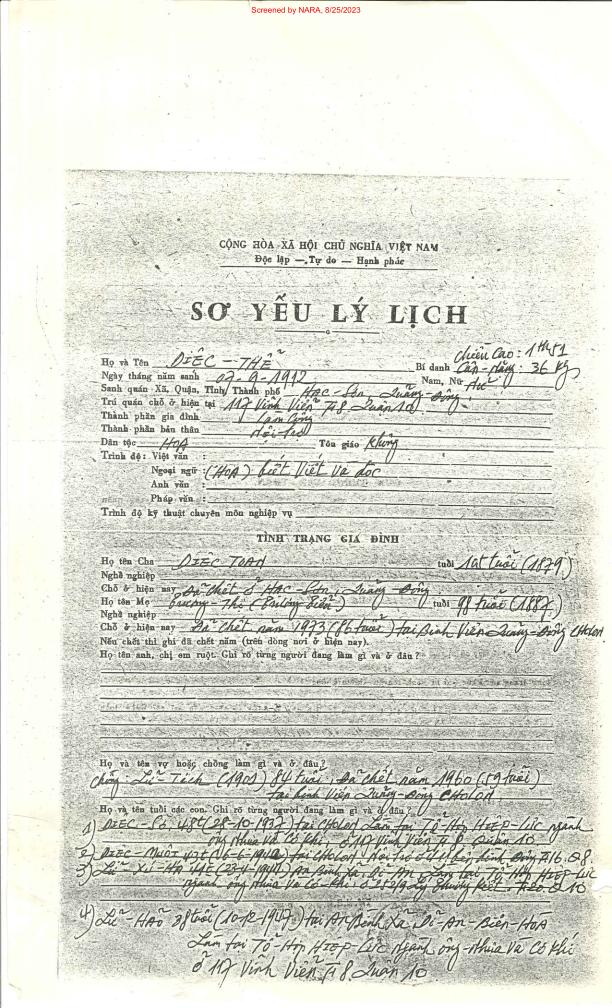 Screened by NARA, 8/25/2023
CỘNG HÒA XÃ HỘI CHỦ NGHĨA VIỆT NAM
Độc lập — Tự do — Hạnh phúc
SƠ YẾU LÝ LỊCH
Chiều Cao: 1th51
Họ và Tên DIỆC-THẾ Bí danh Cân-nặng: 36 Kg
Ngày tháng năm sanh 07-9-1912 Nam, Nữ Nữ
Sanh quán Xã, Quận, Tỉnh, Thành phố HẠC-Sơn Quảng-Đông
Trú quán chỗ ở hiện tại 117 Vĩnh Viễn F.8 Quận 10
Thành phần gia đình
Thành phần bản thân Nội trợ
Dân tộc HOA Tôn giáo Không
Trình độ: Việt văn :
Ngoại ngữ (HOA) biết Viết và đọc
Anh văn :
Pháp văn :
Trình độ kỹ thuật chuyên môn nghiệp vụ
TÌNH TRẠNG GIA ĐÌNH
Họ tên Cha DIỆC TOAN tuổi tuổi (1879)
Nghề nghiệp
Chỗ ở hiện nay Đã chết ở HẠC-Sơn, Quảng-Đông
Họ tên Mẹ Trương-Thị tuổi 98 tuổi (1887)
Nghề nghiệp
Chỗ ở hiện nay Đã chết năm 1973 (86 tuổi) tại Bịnh Viện Quảng-Đông CHOLON.
Nếu chết thì ghi đã chết năm (trên dòng nơi ở hiện nay).
Họ tên anh, chị em ruột. Ghi rõ từng người đang làm gì và ở đâu?
Họ và tên vợ hoặc chồng làm gì và ở đâu?
Chồng: LỮ-Tích (1901) 84 tuổi, Đã chết năm 1960 (59 tuổi)
tại bịnh Viện Quảng-Đông CHOLON.
Họ và tên tuổi các con. Ghi rõ từng người đang làm gì và ở đâu?
1) DIỆC-Sô, 48t (28-10-1937) tại CHOLON Làm tại Tổ-Hợp HIỆP-LỰC ngành
ống Nhựa Và Cơ Khí. ở 117 Vĩnh Viễn F.8 Quận 10
2) DIỆC-MUỐI tại CHOLON. Nội trợ ở bến bình Đông F.16 Q.8.
3) LỮ-Xú-Há An Bình Xã, Dĩ-An Làm tại Tổ Hợp HIỆP LỰC
ngành ống Nhựa Và Cơ-Khí. ở Lý Thường Kiệt Q 10
4) LỮ-HẢO 38 tuổi (10-12-1947) tại An Bình Xã Dĩ-An-Biên-Hoà
Làm tại Tổ-Hợp HIỆP-LỰC Ngành ống-Nhựa Và Cơ Khí
ở 117 Vĩnh Viễn F.8. Quận 10